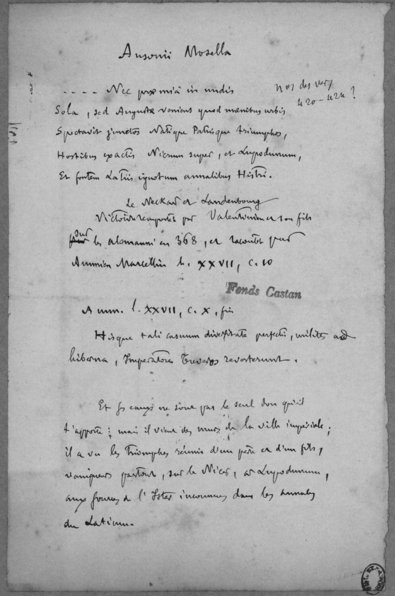 Ausonii Mosella
.... Nec præmia in undis
nos des vers
420-424 ?
Sola, sed Augustæ veniens quod mœnibus urbis
Spectavit junctos Natique Patrisque triumphos,
Hostibus exactis Nicrum super, et Lupodunum,
Et fontem Latiis ignotum annalibus Histri.
Le Neckar et Landenbourg
Victoire remportée par Valentinien et son fils
sur les alamanni en 368, et racontée par
Ammien Marcellin l. XXVII, c. 10
Fonds Castan
Amm. l. XXVII, c. X, fin
Hisque tali casuum diversitate perfectis, milites ad
hiberna, Imperatores Treveros reverterunt.
Et ses eaux ne sont pas le seul don qu'il
t'apporte ; mais il vient des murs de la ville impériale ;
il a vu les Triomphes réunis d'un père et d'un fils,
vainqueurs partout, sur le Nicer, et Lupodunum,
aux sources de l'Ister inconnues dans les annales
du Latium.